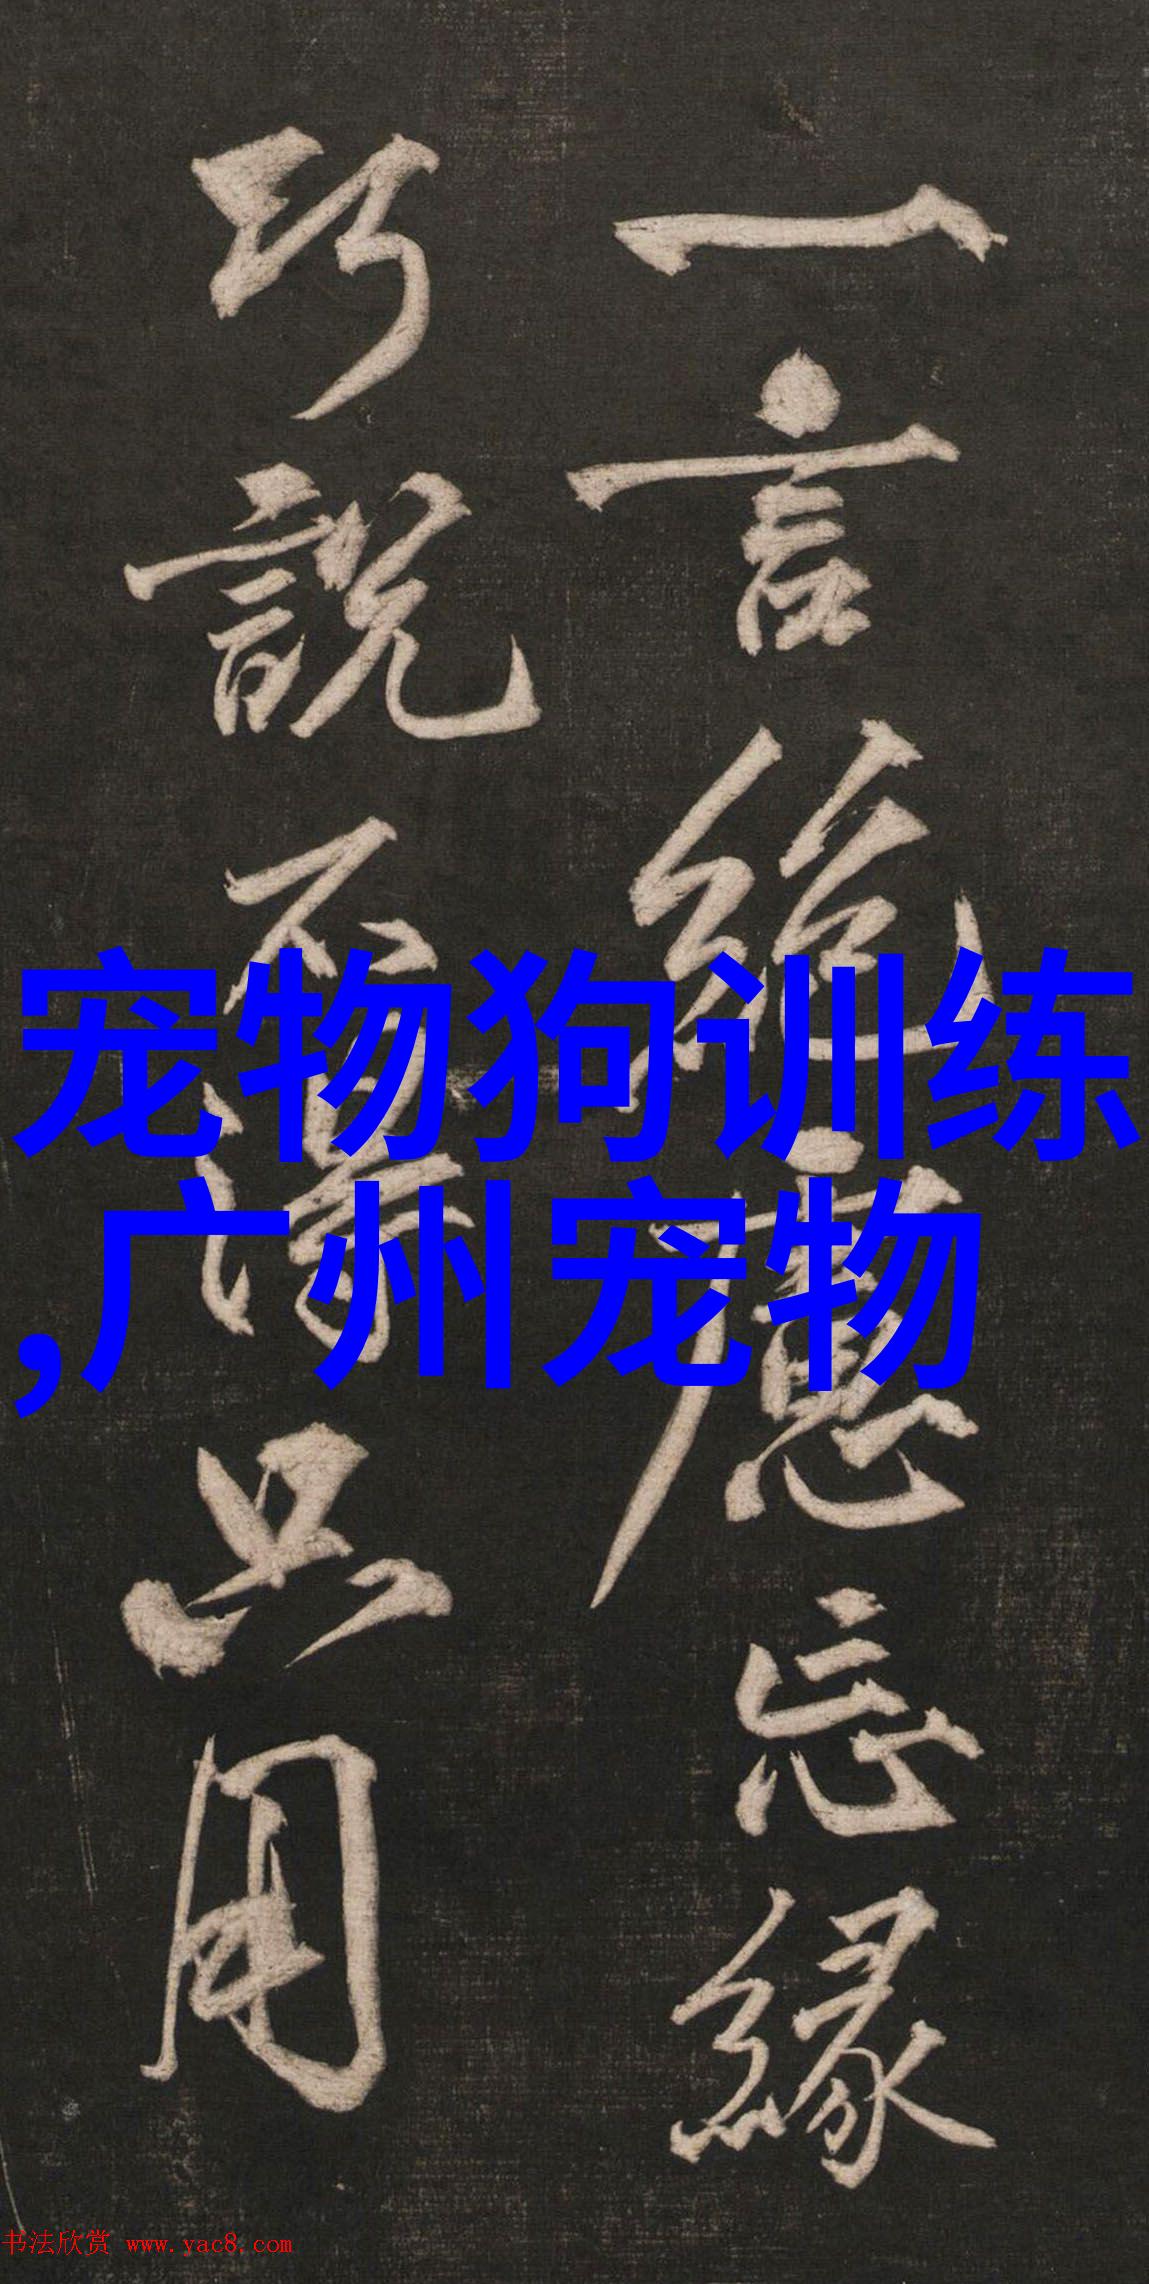 一言絶慮忘緣
巧說不得只用
宠物狗训练
,广州宠物
书法欣赏 www.yac8.com